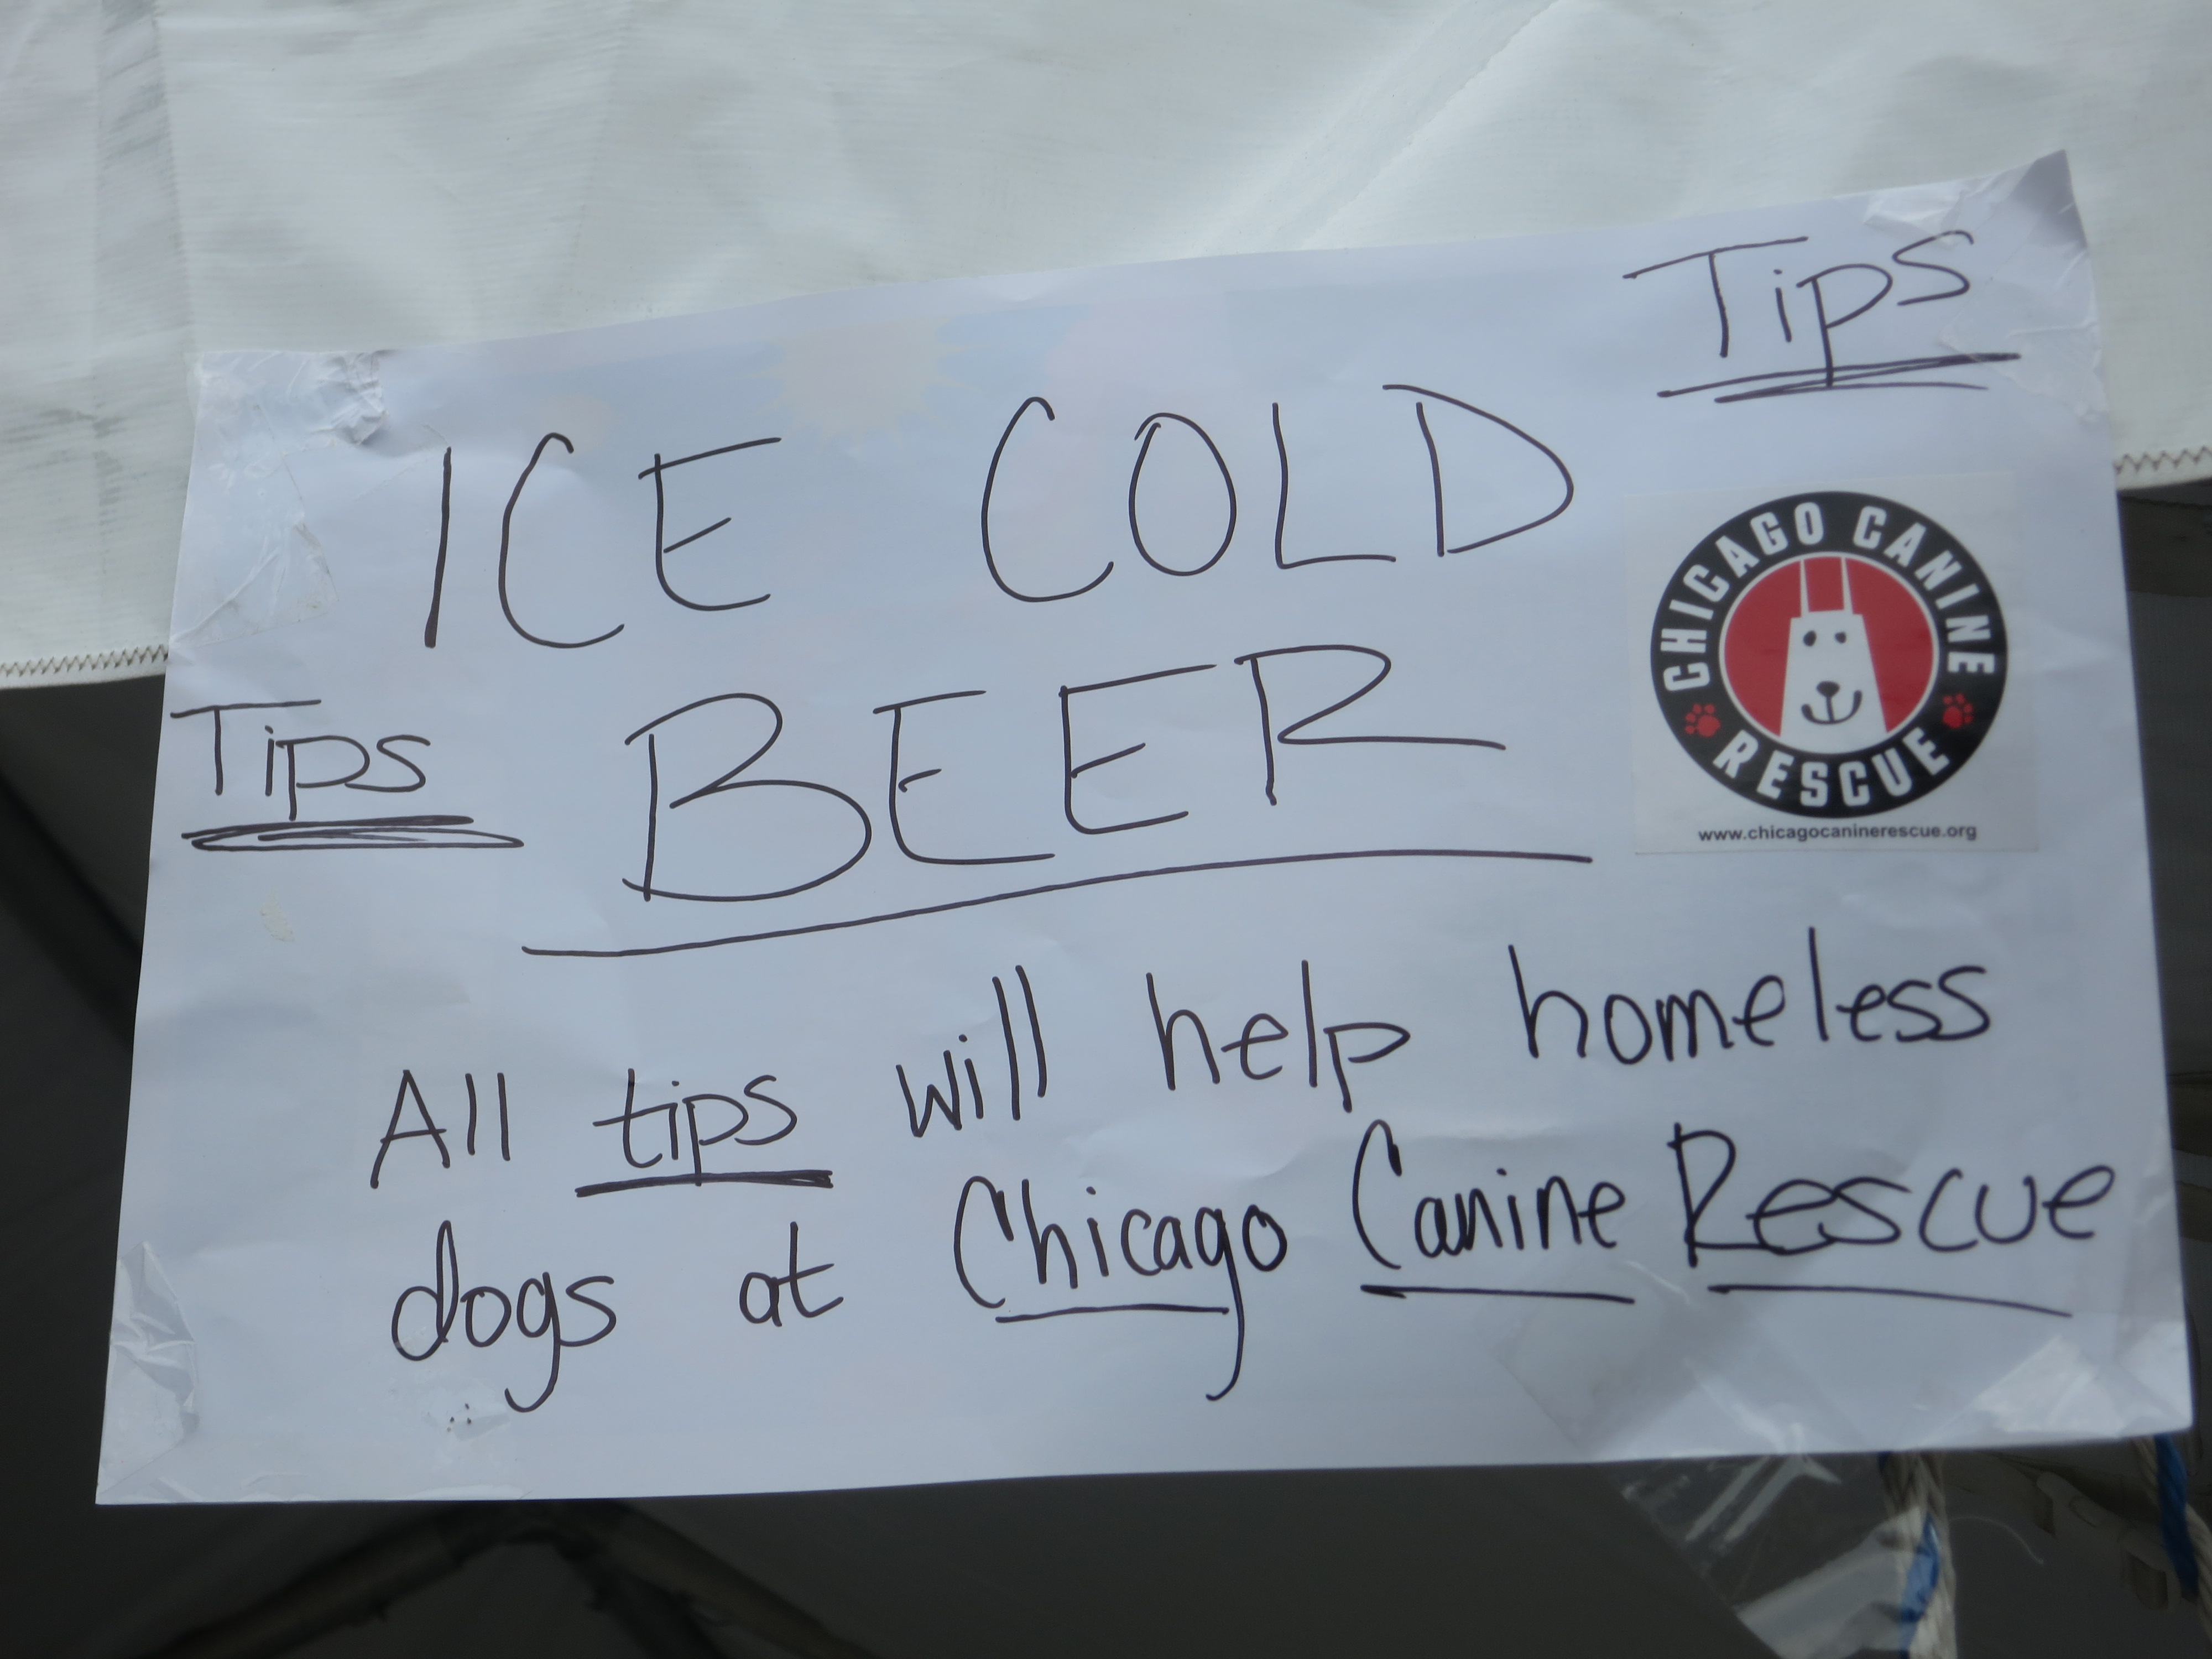 Tips
ICE COLD
Tips
BEER
CHICAGO CANINE
RESCUE
www.chicagocaninerescue.org
All tips will help homeless
dogs at Chicago Canine Rescue